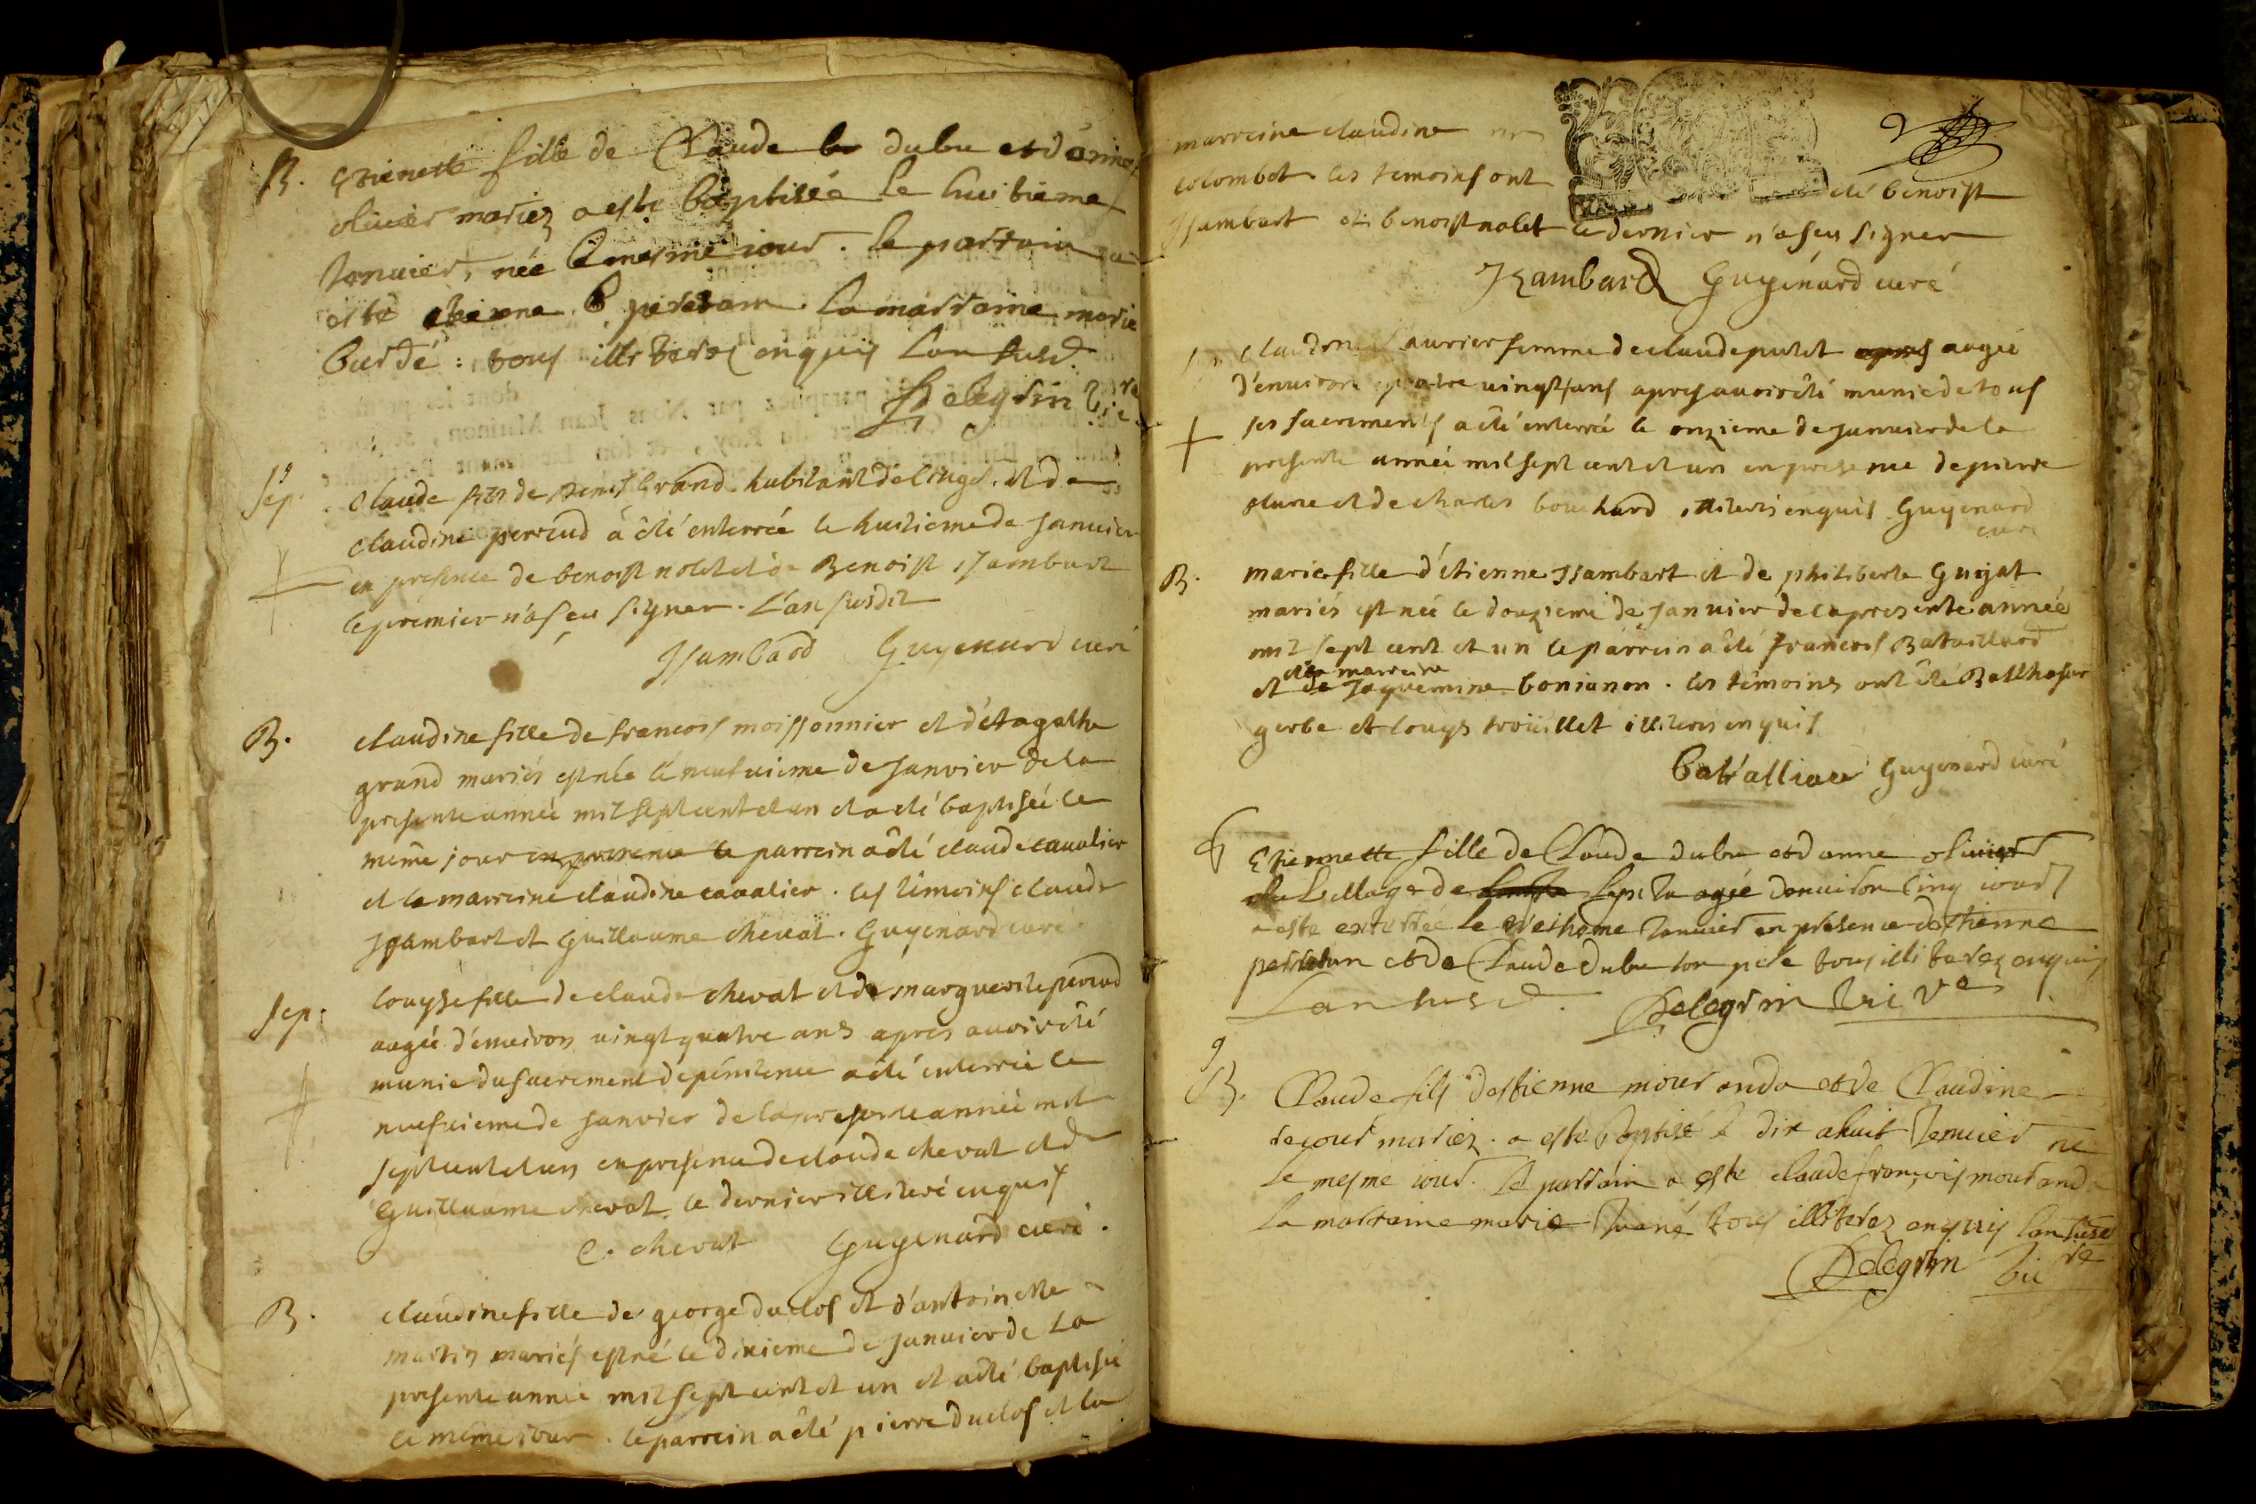 B. Etienette fille de Claude dubu et d'anne
olivier mariez a este baptisée le huitieme
Janvier, née le mesme iour. le parrain a
esté etienne perretan. la marraine marie
burdé: tous illiterez enquis l'an susd.
Pelegrin vic re
Sep. Claude fils de Denis Grand. habitant de linget. et de
claudine perrend à été enterrée le huitieme de Janvier
en presence de benoist nolet et de Benoist Isambart
le premier n'a sceu signer. L'an susdit
Isambard Guyenard curé
B. claudine fille de francois moissonnier et d'etagathe
grand mariés est née le neufvieme de Janvier de la
presente année mil sept cent et un et a été baptisée le
même jour en presence le parrein a été claude cavalier
et la marreine claudine cavalier. les témoins claude
Isambart et Guillaume chevat. Guyenard curé
Sep: Louyse fille de claude chevat et de marguerite perrad
aagée d'environ vingt quatre ans apres avoir été
munie du sacrement de pénitence a été enterrée le
neufvieme de Janvier de la presente année mil
sept cent et un en presence de claude chevat et de
Guillaume chevat. le dernier illiteré enquis
C. chevat Guyenard curé.
B. claudine fille de george duclos et d'antoinette
martin mariés est né le dixieme de Janvier de la
presente année mil sept cent et un et a été baptisée
le même iour. le parrein a été pierre duclos et la
marreine claudine
colombet. les temoins ont été benoist
Isambart et benoist nolet le dernier n'a sceu signer
Isambard Guyenard curé
Claudine Laurier femme de claude putet apres aagée
d'environ quatre vingts ans apres avoir été munie de tous
ses sacrements a été enterrée le onzieme de Janvier de la
presente année mil sept cent et un en presence de pierre
et de charles bouchard, illiterés enquis Guyenard
curé
B. marie fille d'étienne Isambart et de philiberte Guyat
mariés est née le douzieme de Janvier de la presente année
mil sept cent et un le parrein a été francois Bataillard
et la marreine
et de Jaquemine bonianon. les témoins ont été Balthasar
gerbe et louys trouillet illiterés enquis
Guyenard curé
Etiennette fille de Claude dubu et d'anne olivier
du village de agée d'environ cinq iours
a este enterrée le Janvier en présence d'estienne
perretan et de Claude dubu son pere tous illiterez enquis
L'an susd. Pelegrin vic re
B. Claude fils d'estienne mourande et de Claudine
mariez. a esté baptisé le dix ahuit Janvier né
le mesme iour. le parrain a este claude françois mourand
la marraine marie tous illiterez enquis l'an susd
Pelegrin vic re